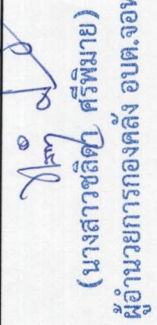 (นางสาวชลิตา ศรีพิมาย)
ผู้อำนวยการกองคลัง อบต.จอห